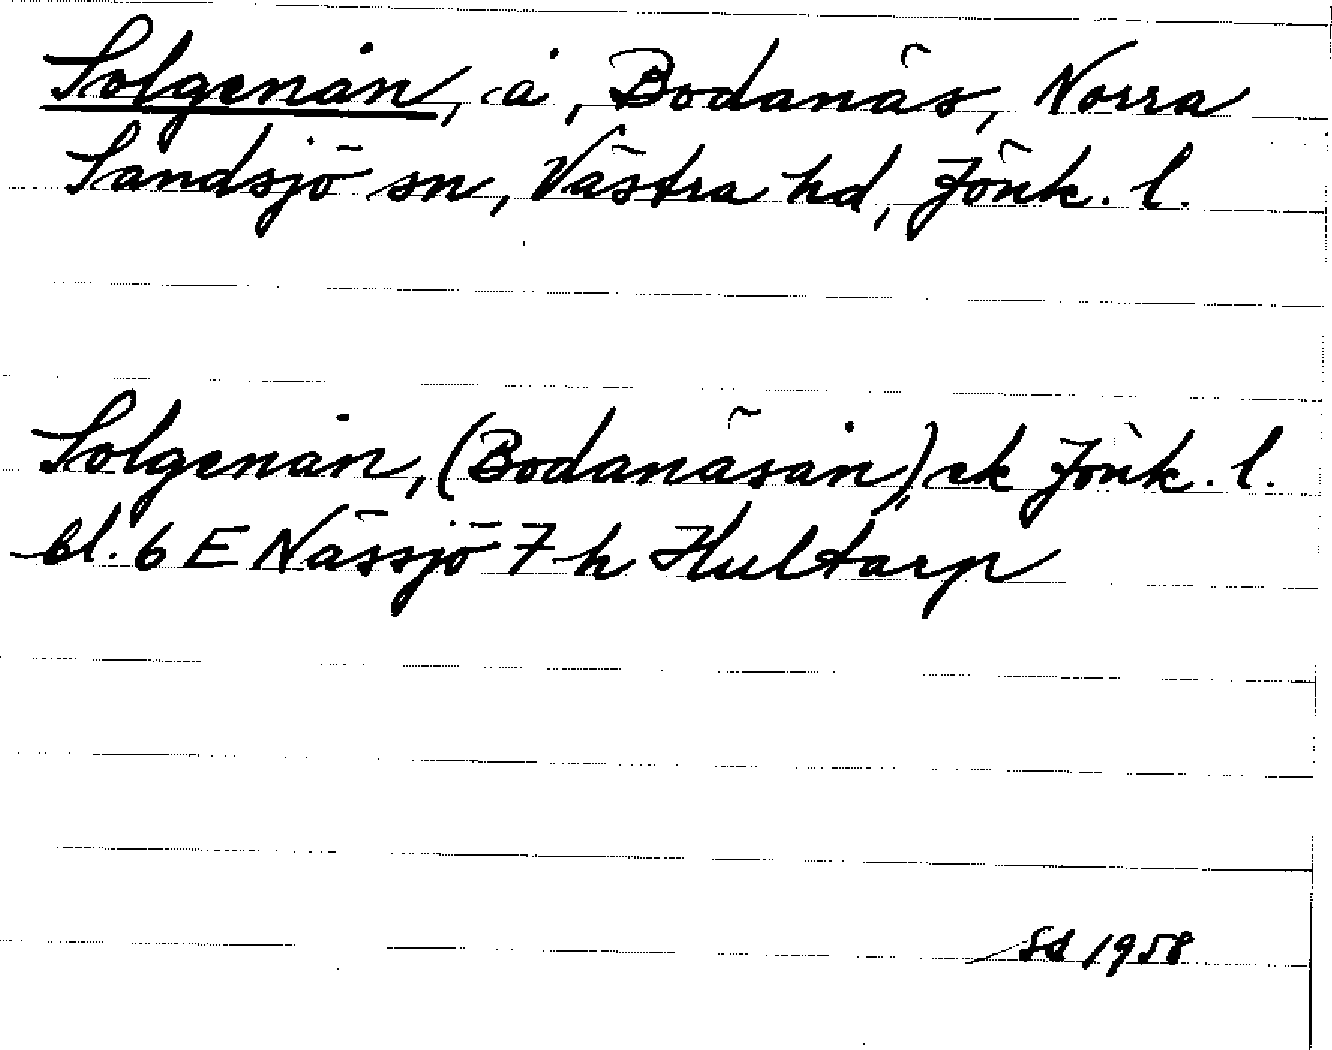 Solgenån, å, Bodanäs, Norra
Sandsjö sn, Västra hd, Jönk. l.
Solgenån, (Bodanäsån), ek Jönk. l.
bl. 6 E Nässjö 7 h Hultarp
SS 1958